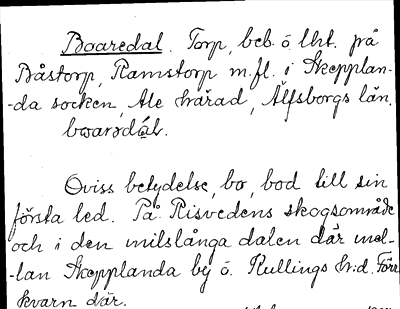 Boaredal. Torp, beb. ö. Lht. på
Båstorp, Ramstorp m.fl. i Skepplan-
-da socken, Ale härad, Älfsborgs län.
boarədál.
Oviss betydelse, bo, bod till sin
första led. På Risvedens skogsområde
och i den milslånga dalen där mel-
-lan Skepplanda by ö. Kullings h:d. Förr
kvarn där.